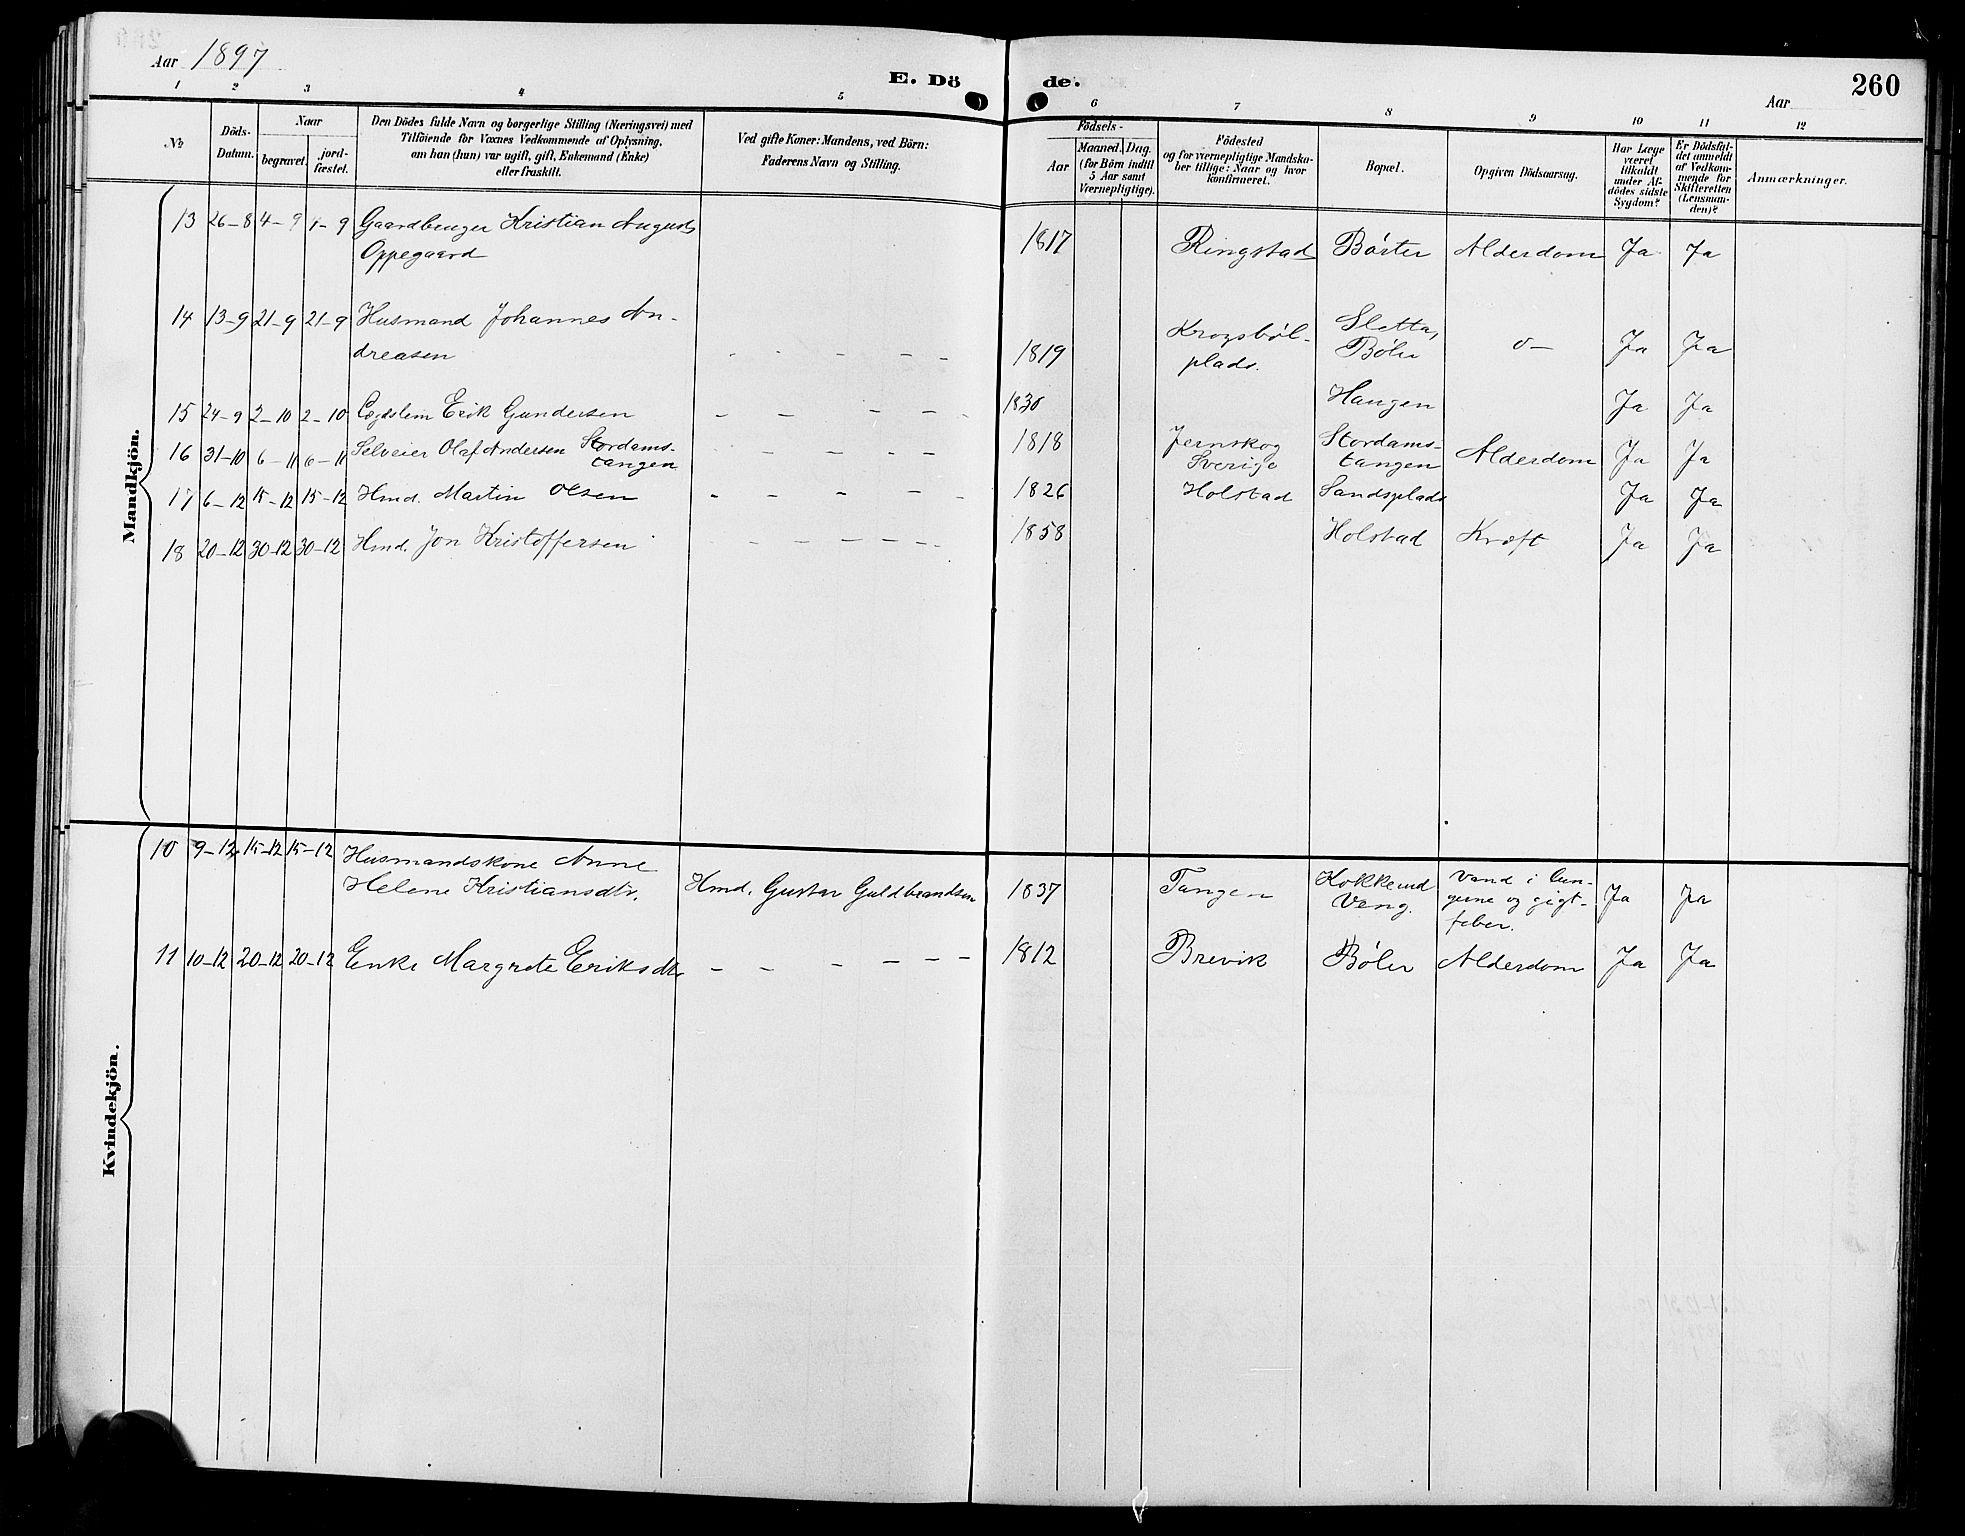 Aar 1897
E. Dö de.
Aar
260
1 2 3 4 5 6 7 8 9 10 11 12
No
Döds-
Datum.
Naar
begravet.
jord-
fæstet.
Den Dödes fulde Navn og borgerlige Stilling (Næringsvei) med
Tilföiende for Voxnes Vedkommende af Oplysning,
om han (hun) var ugift, gift, Enkemand (Enke)
eller fraskilt.
Ved gifte Koner: Mandens, ved Börn:
Faderens Navn og Stilling.
Födsels-
Aar
Maaned. Dag.
(for Börn indtil
5 Aar samt
Værnepligtige).
Födested
og for viernepligtige Mandska-
ber tillige: Naar og hvor
konfirmeret.
Bopæl.
Opgiven Dödsaarsag.
Har Læge
været
tilkaldt
under Af-
dödes sidste
Sygdom?
Er Dödsfal-
det anmeldt
af Vedkom-
mende for
Skifteretten
(Lensman-
den)?
Anmærkninger.
Mandkjön.
13 26-8 4-9 4-9 Gaardbruger Kristian August
Oppegaard 1817 Ringstad Börter Alderdom Ja Ja
14 13-9 21-9 21-9 Husmand Johannes An-
dreasen - - - - - 1819 Krogsbøl-
plads. Sletta,
Böler o- Ja Ja
15 24-9 2-10 2-10 Lægdslem Erik Gundersen - - - - - 1830 Haugen Ja Ja
16 31-10 6-11 6-11 Selveier Olaf Andersen Stordams-
tangen - - - - - 1818 Jernskog
Sverige Stordams-
tangen Alderdom Ja Ja
17 6-12 15-12 15-12 Hmd. Martin Olsen - - - - - 1826 Holstad Sandsplads Ja Ja
18 20-12 30-12 30-12 Hmd. Jon Kristoffersen - - - - - - 1858 Holstad Kræft Ja Ja
Kvindekjön.
10 9-12 15-12 15-12 Husmandskone Anne
Helene Kristiansdtr. Hmd. Gustav Guldbrandsen 1837 Tangen Kokkerud
Veng. Vand i Lun-
gerne og gigt-
feber. Ja Ja
11 10-12 20-12 20-12 Enke Margrete Eriksdtr - - - - - - 1812 Brevik Böler Alderdom Ja Ja